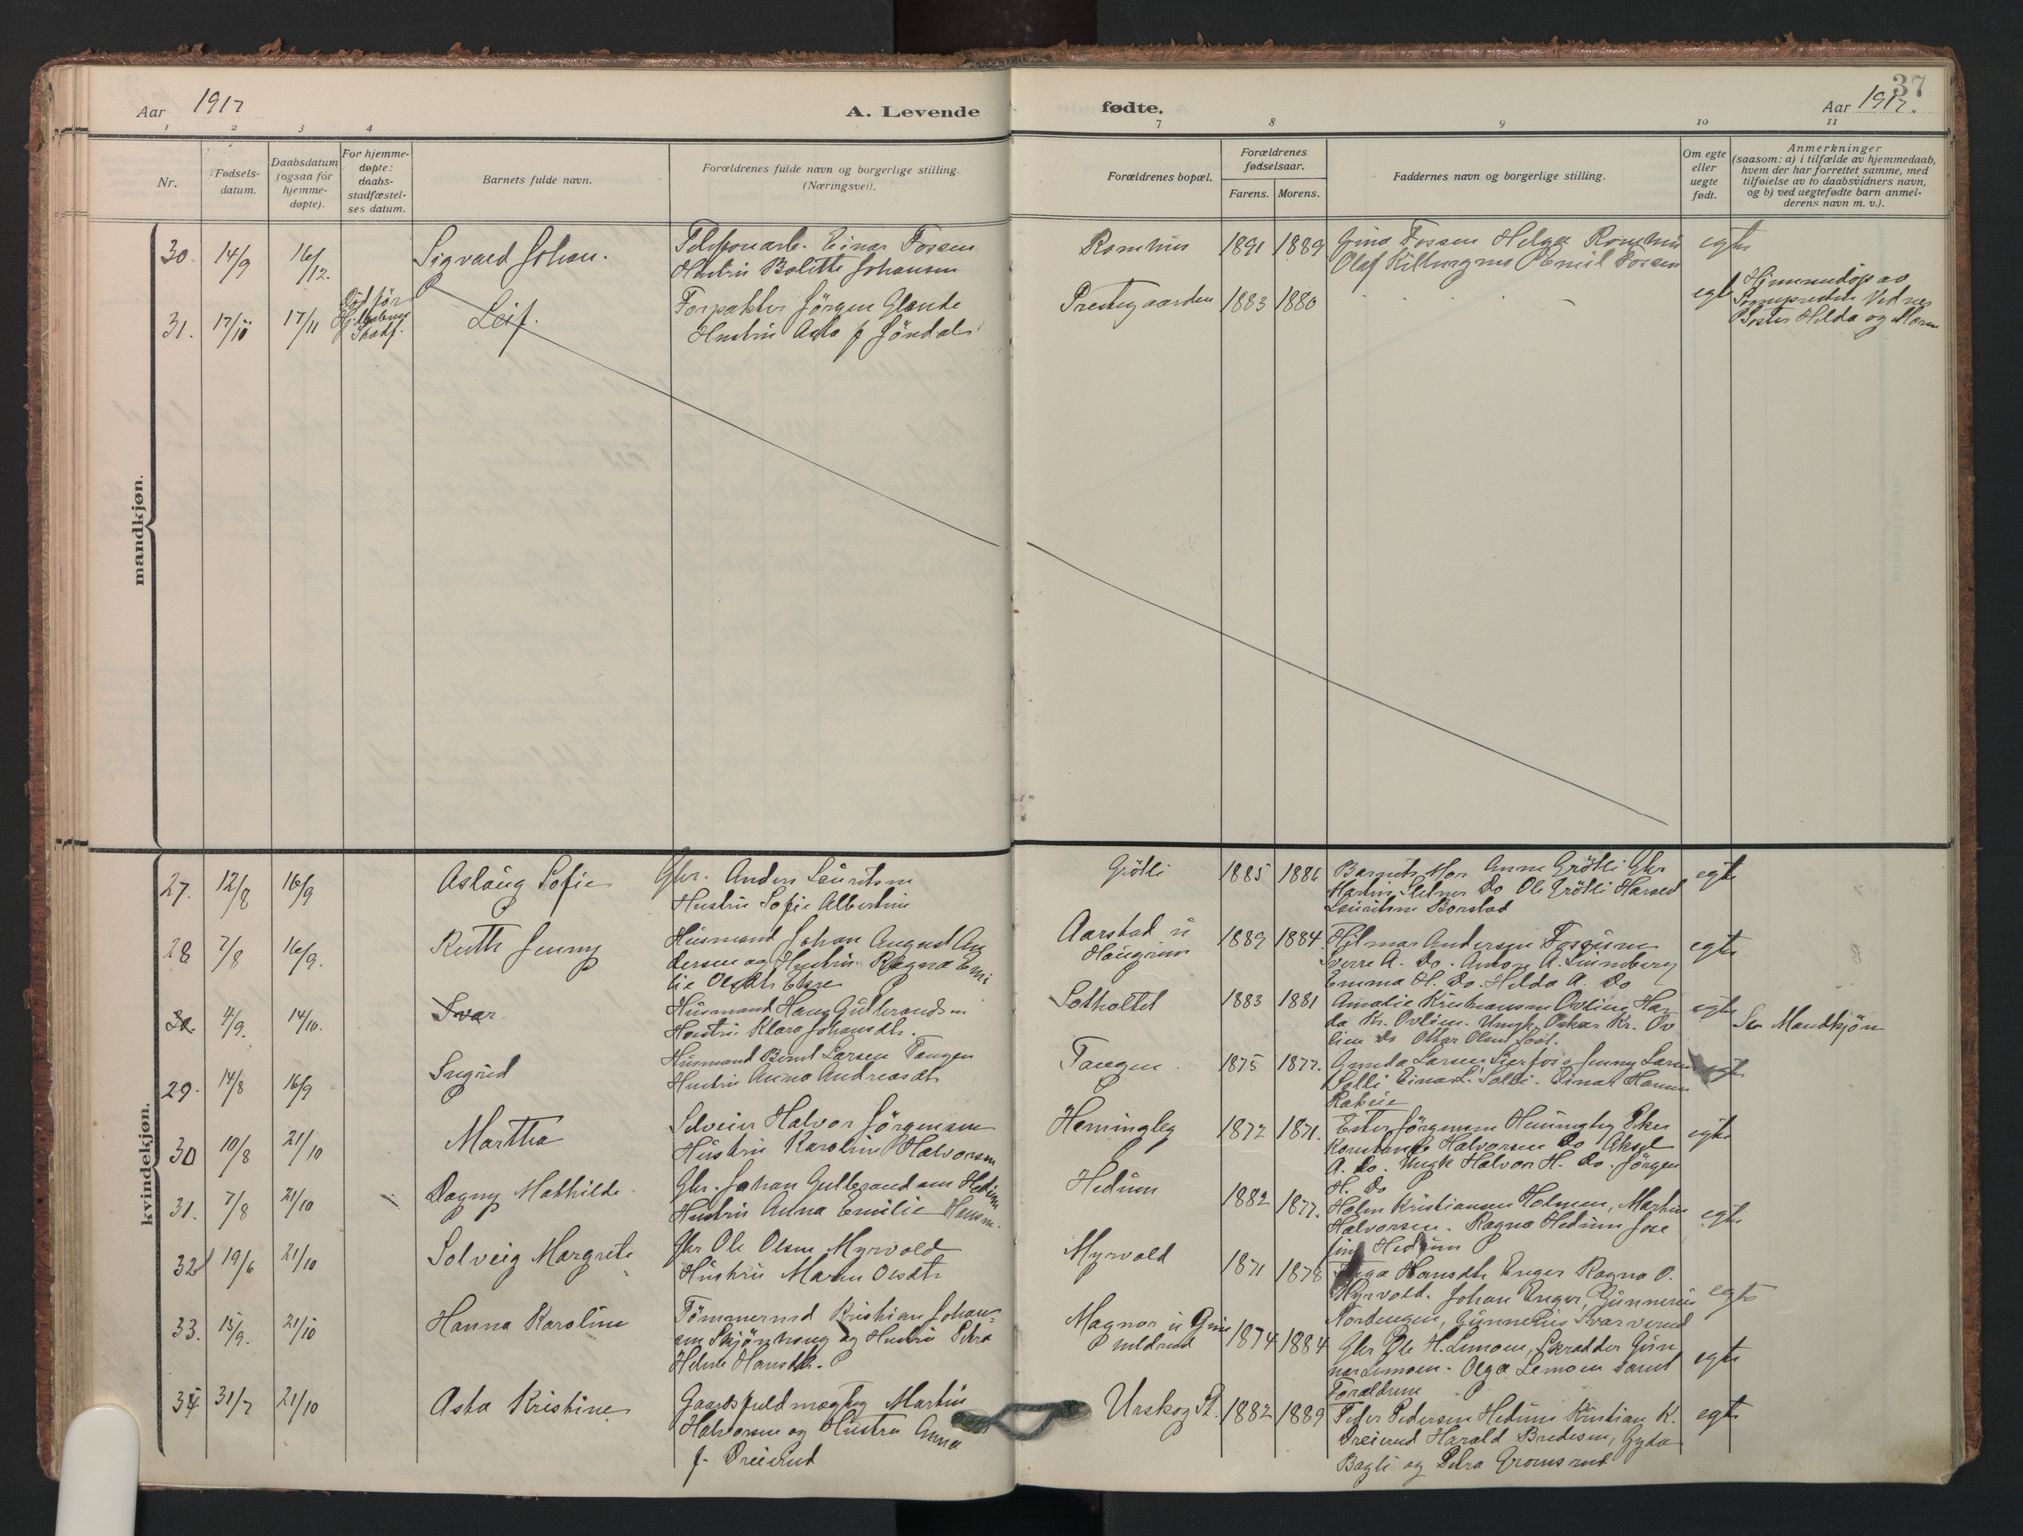 37
Aar 1917
A. Levende
fødte.
Aar 1917.
1 2 3 4 7 8 9 10 11
Nr.
Fødsels-
datum.
Daabsdatum
(ogsaa for
hjemme-
døpte).
For hjemme-
døpte:
daabs-
stadfæstel-
ses datum.
Barnets fulde navn.
Forældrenes fulde navn og borgerlige stilling.
(Næringsvei).
Forældrenes bopæl.
Forældrenes
fødselsaar.
Farens. Morens.
Faddernes navn og borgerlige stilling.
Om egte
eller
uegte
født.
Anmerkninger
(saasom: a) i tilfælde av hjemmedaab,
hvem der har forrettet samme, med
tilføielse av to daabsvidners navn,
og b) ved uegtefødte barn anmel-
derens navn m. v.).
mandkjøn.
30. 14/9 16/12. Sigvald Johan.
Telefonarb. Einar Fossen
Hustru Bolitte Johansen
Romhus 1891 1889
Gina Fossen Helga Romhus
Olaf Emil Fossen
egte
31. 17/10 17/11
Død før
Stadf.
Leif.
Forpakter Jørgen Glende
Hustru Asta f Jøndal
Prestegaarden 1883 1880
egte
Hjemmedøpt av
Sogneprest
Søster Hilda og Maren
kvindekjøn.
27. 12/8 16/9 Aslaug Sofie
Gbr. Anders Lauritsen
Hustru Sofie Albertine
Grøtli 1885 1886
Barnets Mor Anne Grøtli Gbr
Martin Do Ole Grøtli Harald
Lauritsen Borstad
egte
28 7/8 16/9. Ruth Jenny
Husmand Johan August An
dersen og Hustru Ragna Emi
lie Olsdt
Aarstad u
Haugrim
1889 1884.
Hilmar Andersen
Sverre A. Do. Anton A. Lundberg
Emma H. Do. Hilda A. Do
egte
30. 4/9. 14/10. Ivar.
Husmand Hans Gulbrandsen
Hustru Klara Johansdt.
1883 1881
Amalie Kristiansen Ovlien Har
da Kr. Ovlien. Ungk. Oskar Kr. Ov
lien Do Ottar Olsen
egte
Se Mandkjøn
29. 14/8 16/9 Ingrid
Husmand Bernt Larsen Tangen
Hustru Anna Andreasdt
Tangen 1875 1877.
Larsen Jenny Larsen
Einar Solli. Einar Hansen
egte
30 10/8 21/10 Martha
Selveier Halvor Jørgensen
Hustru Karoline Halvorsen
Hemingby 1872 1871.
Ester Jørgensen Hemingby
Konstance Halvorsen Do Aksel
A. Do. Ungk Halvor H. Do. Jørgen
H. Do
egte
31. 7/8 21/10 Dagny Mathilde.
Gbr. Johan Gulbrandsen Hedum
Hustru Anna Emilie Hansen.
Hedum 1882 1877.
Kristiansen Holmen, Martin
Halvorsen. Ragna Hedum Jose
fine Hedum
egte
32 19/6 21/10 Solveig Margrete
Gbr Ole Olsen Myrvold
Hustru Maren Olsdt
Myrvold 1871 1878
Hansdt Enger Ragna O.
Myrvold. Johan Enger, Gunnerius
Nordengen, Gunnerius
egte
33. 13/9. 21/10 Hanna Karoline
Tømmermd Kristian Johan-
sen Skjønhaug og Hustru Petra
Helene Hansdt.
Magnor u
1874 1884
Gbr Ole H. Lemoen, Skrædder Gun
nar Lemoen. Olga Lemoen samt
Forældrene
egte
34 31/7 21/10 Asta Kristine
Gaardsfuldmægtig Martin
Halvorsen og Hustru Anna
f. Dreierud
Urskog St. 1882 1889
Peter Pedersen Hedum Kristian K.
Dreierud Harald Bredesen, Gyda
Bagli og Petra Gromsrud
egte